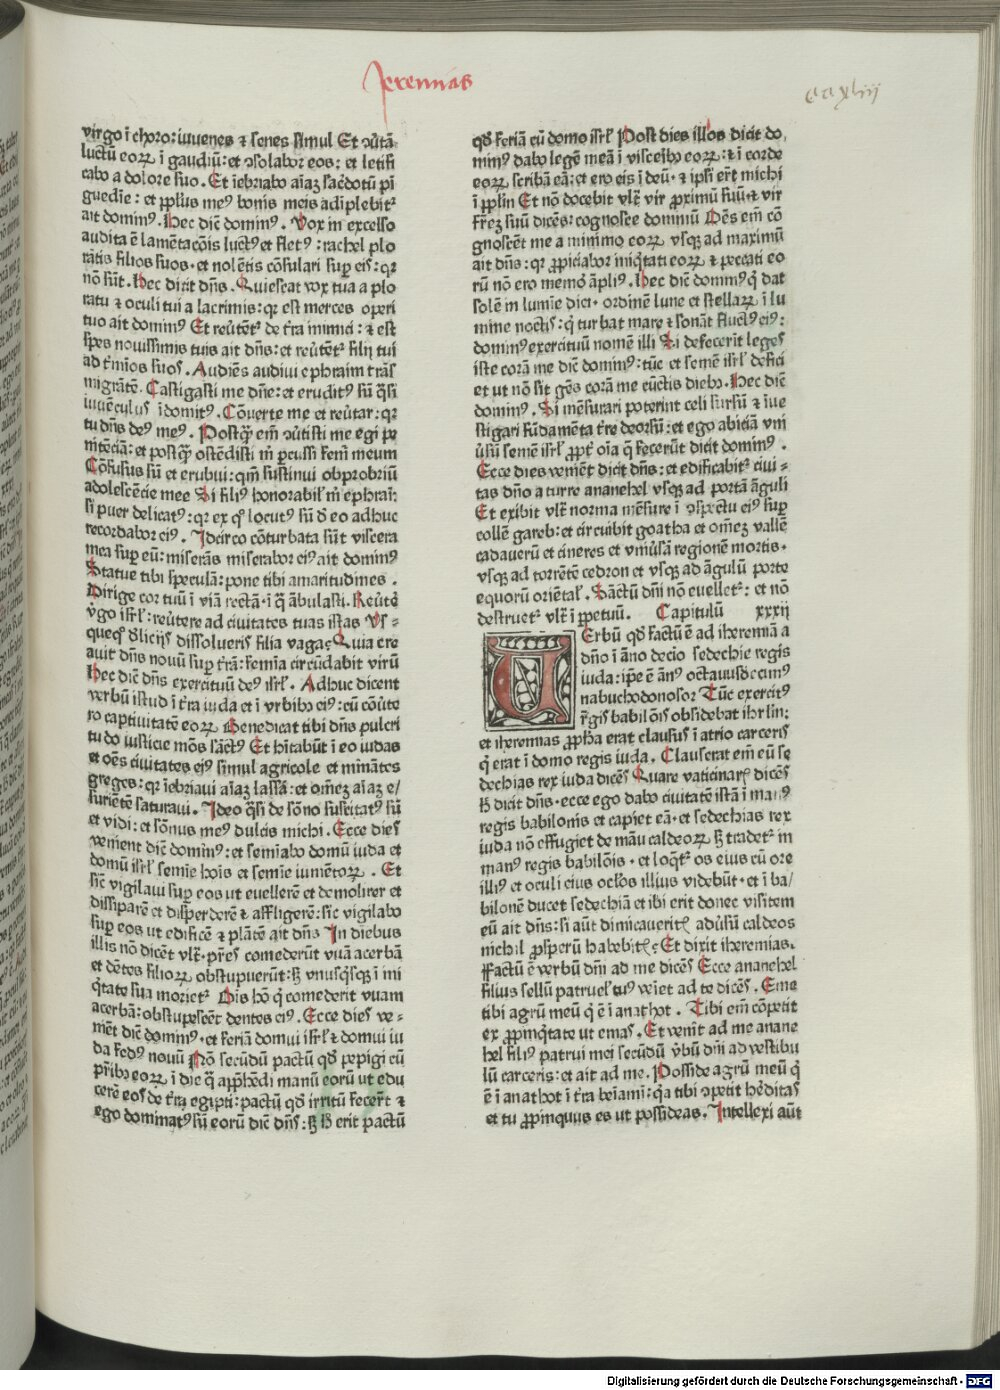 Jeremias
ccxliiij
virgo ī choro: iuuenes ⁊ senes simul Et ɔūtā-
luctū eoꝝ ī gaudiū: et ɔsolabor eos: et letifi
cabo a dolore suo. Et īebriabo aīaꝫ saćdotū pī
guedie: et pp̄lus meꝰ bonis meis adīplebit᷑
ait dominꝰ. Hec diē dominꝰ. Vox in excelso
audita ē lamētacōis luctꝰ et fletꝰ: rachel plo
rātis filios suos. et nolētis cōsulari suꝑ eis: qr
nō sūt. Hec dicit dn̄s. Quiescat vox tua a plo
ratu ⁊ oculi tui a lacrimis: qr est merces operi
tuo ait dominꝰ Et reu̇tēt᷑ de t̄ra inimici: ⁊ est
spes nouissimis tuis ait dn̄s: et reu̇tēt᷑ filij tui
ad t̄minos suos. Audiēs audiui ephraim trās
migrātē. Castigasti me dn̄e: et eruditꝰ sū q̄si
iuuēculus īdomitꝰ. Cōuerte me et reu̇tar: qr
tu dn̄s deꝰ meꝰ. Postqꝫ em̄ ɔu̇tisti me egi pe
nitēciā: et postqꝫ ostēdisti m̄ ꝑcussi femꝰ meum
Cōfusus sū et erubui: qm̄ sustinui obprobriū
adolescēcie mee Si filiꝰ honorabil̄ m̄ ephrai:
si puer delicatꝰ: qr ex qͦ locutꝰ sū d̄ eo adhuc
recordabor eiꝰ. Idcirco cōturbata sūt viscera
mea suꝑ eū: miserās miserabor eiꝰ ait dominꝰ
Statue tibi speculā: pone tibi amaritudines.
Dirige cor tuū ī viā rectā. ī q̄ ābulasti. Reu̇tẻ
v̇go isrl̄: reu̇tere ad ciuitates tuas istas Vs-
quequͦ d̄liciis dissolueris filia vaga? Quia cre
auit dn̄s nouū suꝑ t̄rā: femīa circūdabit virū
Hec diē dn̄s exercituū deꝰ isrl̄. Adhuc dicent
verbū istud ī t̄ra iuda et ī vrbibꝰ eiꝰ: cū cōu̇te
ro captiuitatē eoꝝ Benedicat tibi dn̄s pulcri
tudo iusticie mōs sāctꝰ Et hītabūt ī eo iudas
et oēs ciuitates eiꝰ simul agricole et minātes
greges: qr īebriaui aīaꝫ lassā: et omēꝫ aīaꝫ e/
suriētē saturaui. Ideo q̄si de sōno suscitatꝰ sū
et vidi: et sōnus meꝰ dulcis michi. Ecce dies
venient diē dominꝰ: et semīabo domū iuda et
domū isrl̄ semīe hōis et semīe iumētoꝝ. Et
sic̄ vigilaui suꝑ eos ut euellerē et demolirer et
dissiparē et disperderē ⁊ affligerē: sic̄ vigilabo
suꝑ eos ut edificē ⁊ plātē ait dn̄s In diebus
illis nō dicēt vlt̄. pr̄es comederūt vuā acerbā
et dētes filioꝝ obstupuerūt: sꝫ vnusq̇sqꝫ ī ini
q̇tate sua moriet᷑ Ois hō q̇ comederit vuam
acerbā: obstupescēt dentes eiꝰ. Ecce dies ve-
niēt diē dominꝰ. et feriā domui isrl̄ ⁊ domui iu
da fedꝰ nouū Nō secūdū pactū qd̄ pepigi cū
pr̄ibꝰ eoꝝ ī die q̄ app̄hēdi manū eorū ut edu
cerē eos de t̄ra egipti: pactū qd̄ irritū fecer̄t ⁊
ego dominatꝰ sū eorū diē dn̄s: sꝫ h̄ erit pactū
qd̄ feriā cū domo isrl̄ Post dies illos dicit do-
minꝰ dabo legē meā ī visceribꝰ eoꝝ: ⁊ ī corde
eoꝝ scribā eā: et ero eis ī deū. ⁊ ipsi er̄t michi
ī pp̄lm Et nō docebit vlt̄ vir proximū suū. ⁊ vir
fr̄eꝫ suū dicēs: cognosce dominū Oēs em̄ co
gnoscēt me a minimo eoꝝ vsqꝫ ad maximū
ait dn̄s: qr ꝓpiciabor iniq̇tati eoꝝ ⁊ peccati eo
rū nō ero memor āpliꝰ. Hec diē dominꝰ q̇ dat
solē in lumīe diei. ordinē lune et stellaꝝ ī lu
mine noctis: q̇ turbat mare ⁊ sonāt fluctꝰ eiꝰ:
dominꝰ exercituū nomē illi Si defecerit leges
iste corā me diē dominꝰ: tūc et semē isrl̄ defici
et ut nō sit gēs corā me cūctis diebꝰ. Hec diē
dominꝰ. Si mēsurari poterint celi sursū ⁊ īue
stigari fūdamēta t̄re deorsū: et ego abiciā vni
u̇sū semē isrl̄ ꝓpt̄ oīa q̄ fecerūt dicit dominꝰ.
Ecce dies veniēt dicit dn̄s: et edificabit᷑ ciui-
tas dn̄o a turre ananehel vsqꝫ ad portā āguli
Et exibit vlt̄ norma mēsure ī ɔspectu eiꝰ suꝑ
collē gareb: et circuibit goatha et omēꝫ vallē
cadauerū et cineres et vniu̇sā regionē mortis.
vsqꝫ ad torrētē cedron et vsqꝫ ad āgulū porte
equorū oriētal̄. Sāctū dn̄i nō euellet᷑: et nō
destruet᷑ vlt̄ ī ꝑpetuū. Capitulū xxxij
VErbū qd̄ factū ē ad iheremiā a
dn̄o ī āno decīo sedechie regis
iuda: ip̄e ē ānꝰ octauusdecimꝰ
nabuchodonosor Tūc exercitꝰ
r̄gis babilōis obsidebat ihrlm̄:
et iheremias ꝓpha erat clausus ī atrio carceris
q̇ erat ī domo regis iuda. Clauserat em̄ eū se
dechias rex iuda dicēs Quare vaticinaris dicēs
h̄ dicit dn̄s. ecce ego dabo ciuitatē istā ī manꝰ
regis babilonis et capiet eā. et sedechias rex
iuda nō effugiet de māu caldeoꝝ sꝫ tradet᷑ in
manꝰ regis babilōis. et loq̇t᷑ os eius cū ore
illiꝰ et oculi eius oc̄los illius videbūt. et ī ba/
bilonē ducet sedechiā et ibi erit donec visitem
eū ait dn̄s: si aūt dimicaueritꝭ adu̇sū caldeos
nichil ꝓsperū habebitꝭ? Et dixit iheremias.
Factū ē verbū dn̄i ad me dicēs Ecce ananehel
filius sellū patruel̄ tuꝰ veīet ad te dicēs. Eme
tibi agrū meū q̇ ē ī anathot. Tibi em̄ cōpetit
ex ꝓpinq̇tate ut emas. Et venit ad me anane
hel filiꝰ patrui mei secūdū v̇bū dn̄i ad vestibu
lū carceris: et ait ad me. Posside agrū meū q̇
ē ī anathot ī t̄ra beiami: qa tibi ɔpetit hēditas
et tu ꝓpinquus es ut possideas. Intellexi aūt
Digitalisierung gefördert durch die Deutsche Forschungsgemeinschaft - DFG